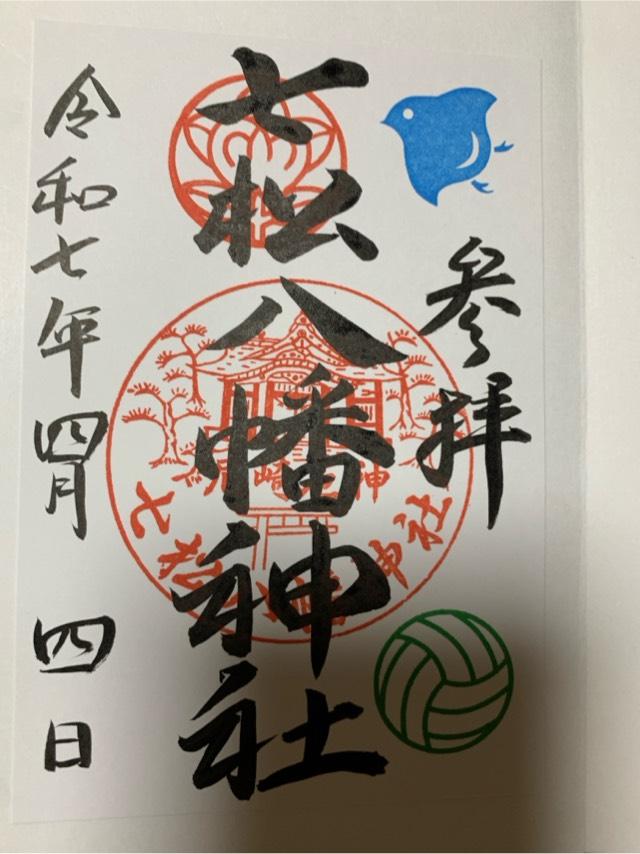 参拝
七松八幡神社
令和七年四月四日
七松八幡神社